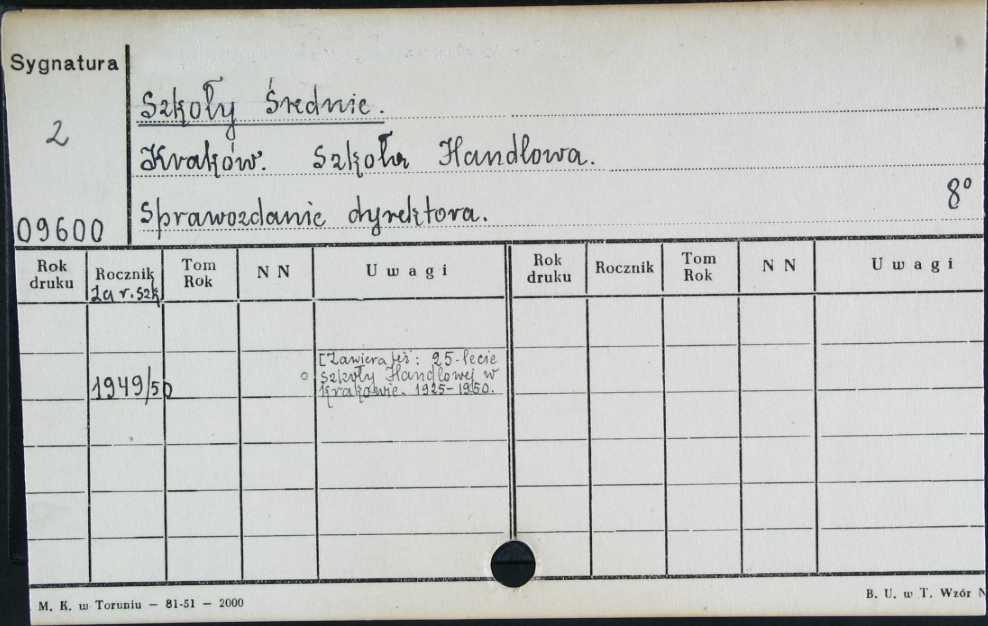 Sygnatura
2
09600
Szkoły Średnie.
Kraków. Szkoła Handlowa.
Sprawozdanie dyrektora.
8°
Rok druku
Rocznik
Za r. szk.
Tom Rok
N N
Uwagi
Rok druku
Rocznik
Tom Rok
N N
Uwagi
1949/50
[Zawiera też: 25-lecie
Szkoły Handlowej w
Krakowie. 1925-1950.
M. K. w Toruniu — 81-51 — 2000
B. U. w T. Wzór N